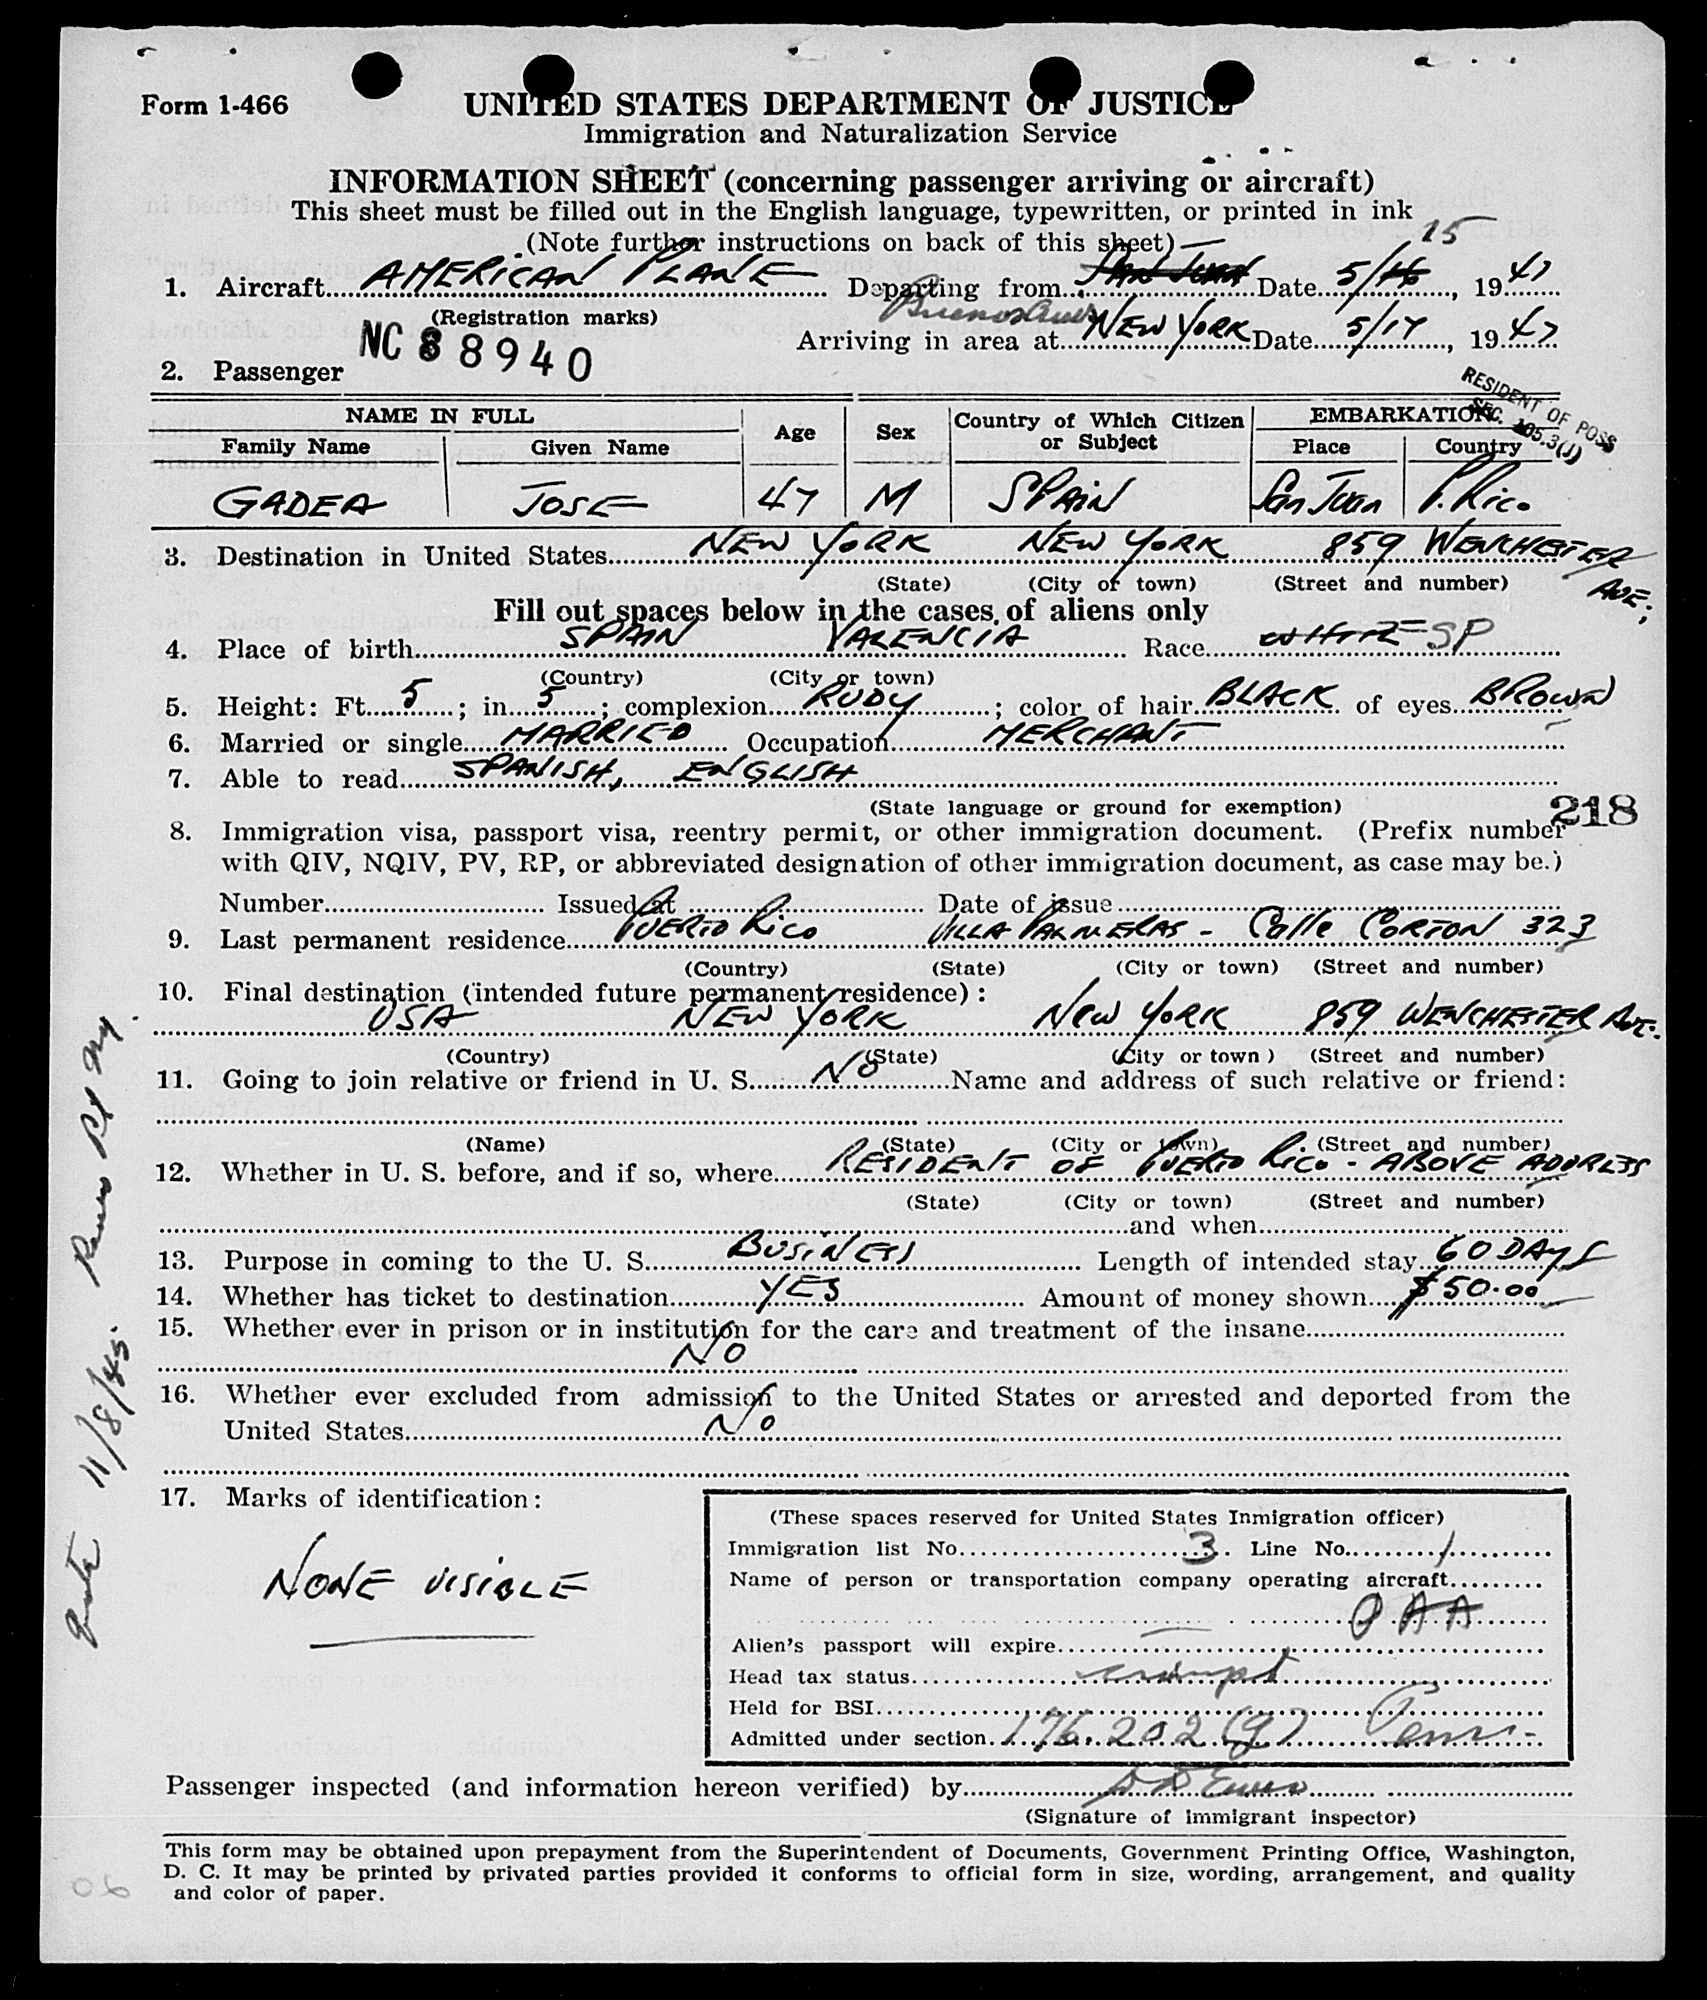 Form 1-466
UNITED STATES DEPARTMENT OF JUSTICE
Immigration and Naturalization Service
INFORMATION SHEET (concerning passenger arriving or aircraft)
This sheet must be filled out in the English language, typewritten, or printed in ink
(Note further instructions on back of this sheet)
15
1. Aircraft AMERICAN PLANE Departing from San Juan Date 5/16, 1947
(Registration marks) Buenos Aires
NC 88940
Arriving in area at NEW YORK Date 5/17, 1947
2. Passenger
RESIDENT OF POSS
SEC. 105.3(J)
NAME IN FULL Age Sex Country of Which Citizen or Subject EMBARKATION
Family Name Given Name Place Country
GADEA JOSE 47 M SPAIN San Juan P. Rico
3. Destination in United States NEW YORK NEW YORK 859 WENCHESTER AVE.
(State) (City or town) (Street and number)
Fill out spaces below in the cases of aliens only
4. Place of birth SPAIN VALENCIA Race WHITE SP
(Country) (City or town)
5. Height: Ft. 5; in. 5; complexion RUDY; color of hair BLACK of eyes BROWN
6. Married or single MARRIED Occupation MERCHANT
7. Able to read SPANISH, ENGLISH
(State language or ground for exemption)
218
8. Immigration visa, passport visa, reentry permit, or other immigration document. (Prefix number
with QIV, NQIV, PV, RP, or abbreviated designation of other immigration document, as case may be.)
Number Issued at Date of issue
9. Last permanent residence PUERTO RICO VILLA PALMERAS - Calle CORTON 323
(Country) (State) (City or town) (Street and number)
10. Final destination (intended future permanent residence):
USA NEW YORK NEW YORK 859 WENCHESTER AVE.
(Country) (State) (City or town) (Street and number)
11. Going to join relative or friend in U. S. NO Name and address of such relative or friend:
(Name) (State) (City or town) (Street and number)
12. Whether in U. S. before, and if so, where RESIDENT OF PUERTO RICO - ABOVE ADDRESS
(State) (City or town) (Street and number)
and when
13. Purpose in coming to the U. S. BUSINESS Length of intended stay 60 DAYS
14. Whether has ticket to destination YES Amount of money shown $50.00
15. Whether ever in prison or in institution for the care and treatment of the insane
NO
16. Whether ever excluded from admission to the United States or arrested and deported from the
United States NO
17. Marks of identification:
NONE VISIBLE
(These spaces reserved for United States Inmigration officer)
Immigration list No. 3. Line No. 1
Name of person or transportation company operating aircraft
PAA
Alien's passport will expire
Head tax status exempt
Held for BSI
Admitted under section 176.202(g)
Passenger inspected (and information hereon verified) by
(Signature of immigrant inspector)
This form may be obtained upon prepayment from the Superintendent of Documents, Government Printing Office, Washington,
D. C. It may be printed by privated parties provided it conforms to official form in size, wording, arrangement, and quality
and color of paper.
06
11/8/45